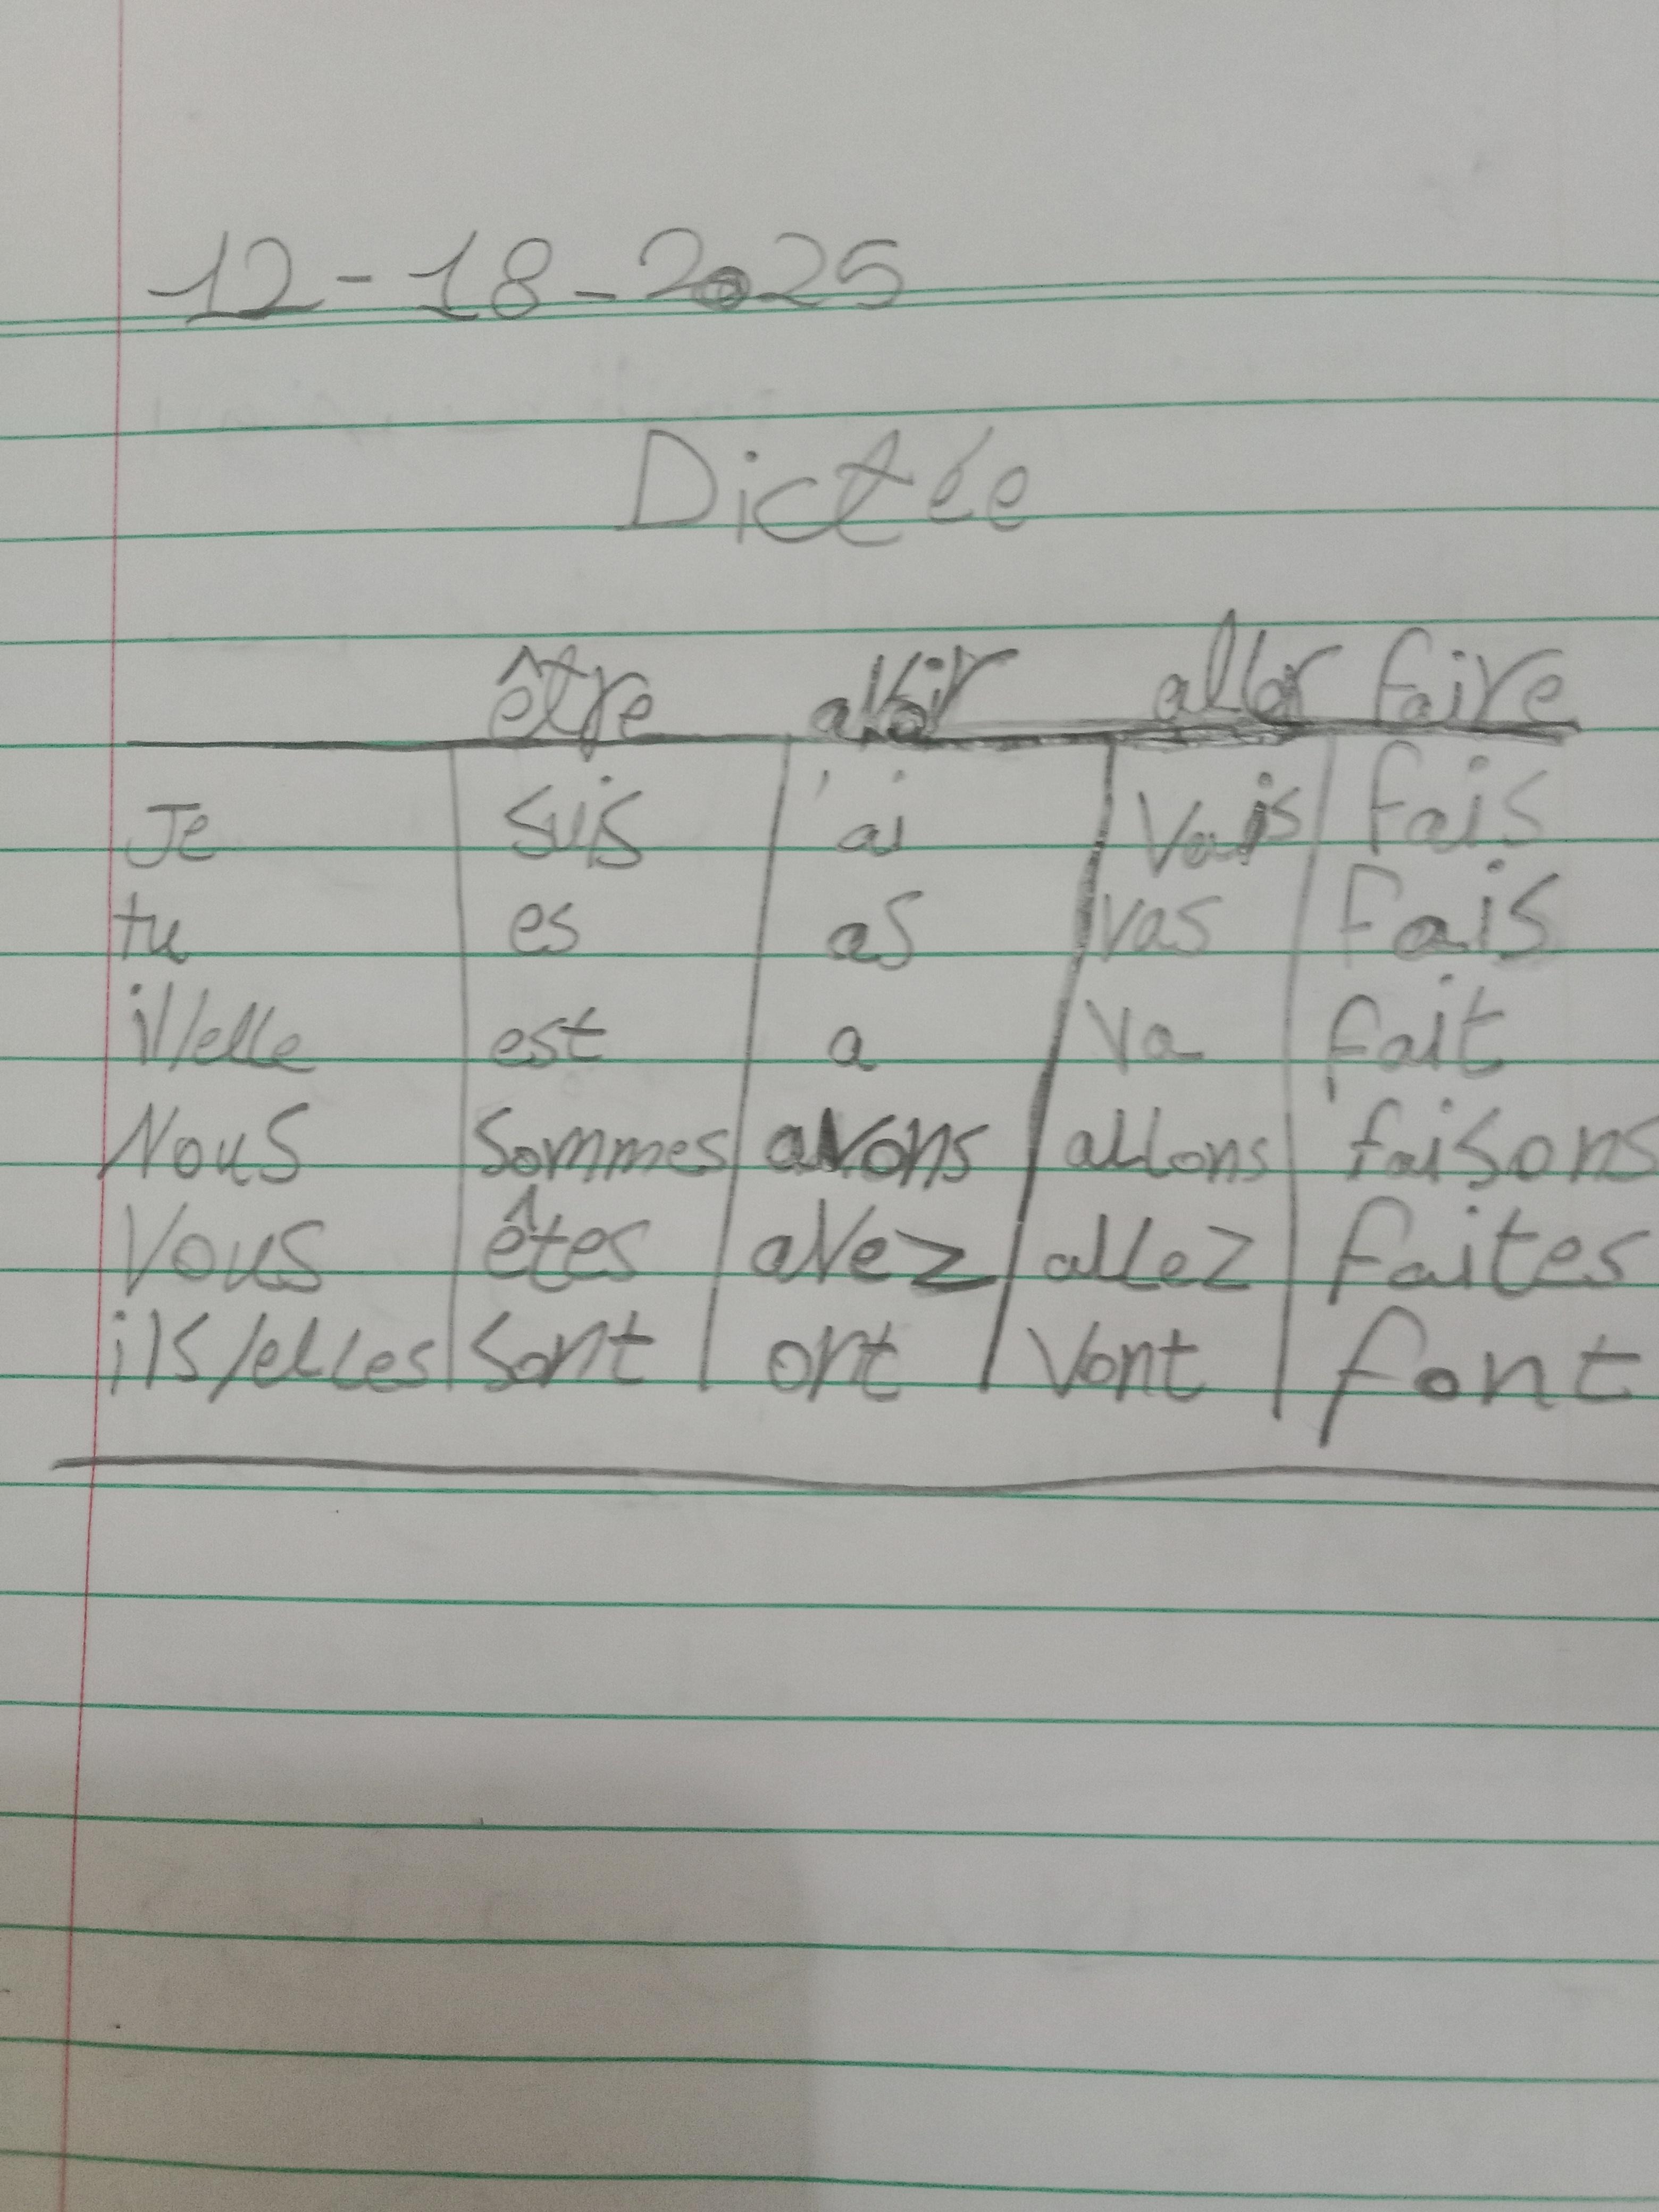 12-18-2025
Dictée
être avoir aller faire
Je suis 'ai vais fais
tu es as vas fais
il/elle est a va fait
Nous sommes avons allons faisons
Vous êtes avez allez faites
ils/elles sont ont vont font